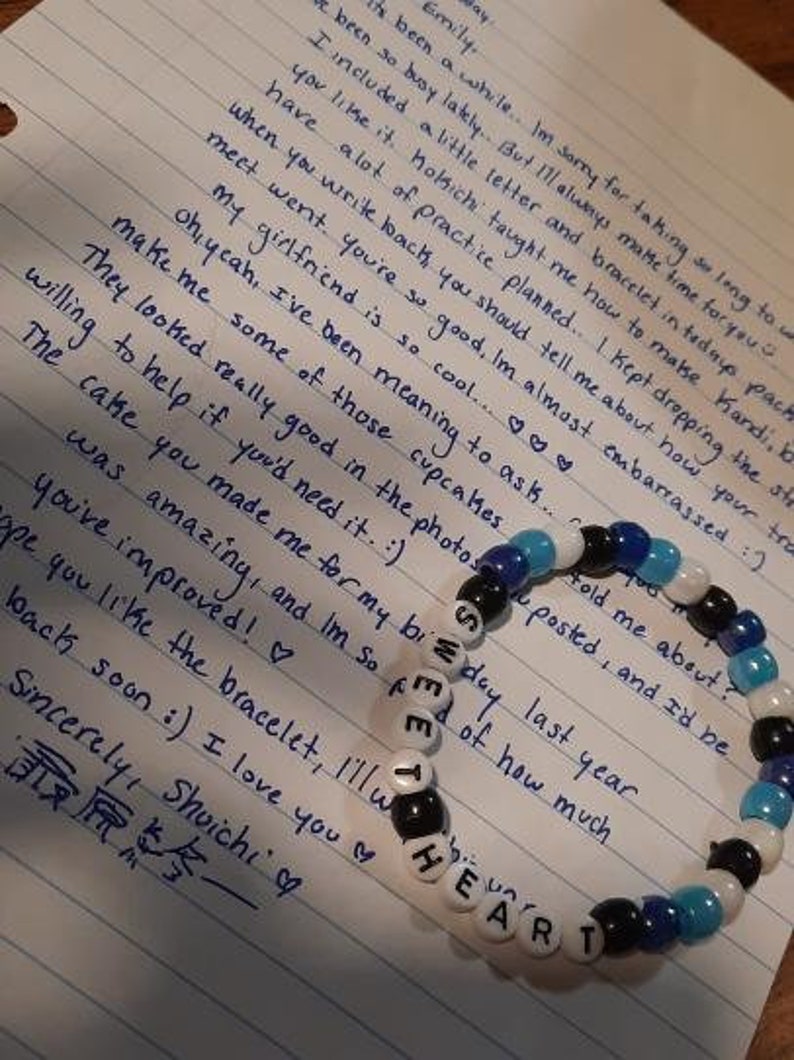 Emily,
it's been a while.. Im sorry for taking so long to
been so busy lately.. But I'll always make time for you
I included a little letter and bracelet in todays
you like it. Kokichi taught me how to make Kandi,
have alot of practice planned.. I kept dropping the
when you write back, you should tell me about how your
meet went. you're so good, Im almost embarrassed :)
My girlfriend is so cool... ♡♡♡
oh, yeah, I've been meaning to ask...
make me some of those cupcakes you told me about?
They looked really good in the photos posted, and I'd be
willing to help if you'd need it. :)
The cake you made me for my day last year
was amazing, and Im so of how much
you've improved! ♡
you like the bracelet, I'll
back soon :) I love you ♡
Sincerely, Shuichi ♡
SWEET HEART